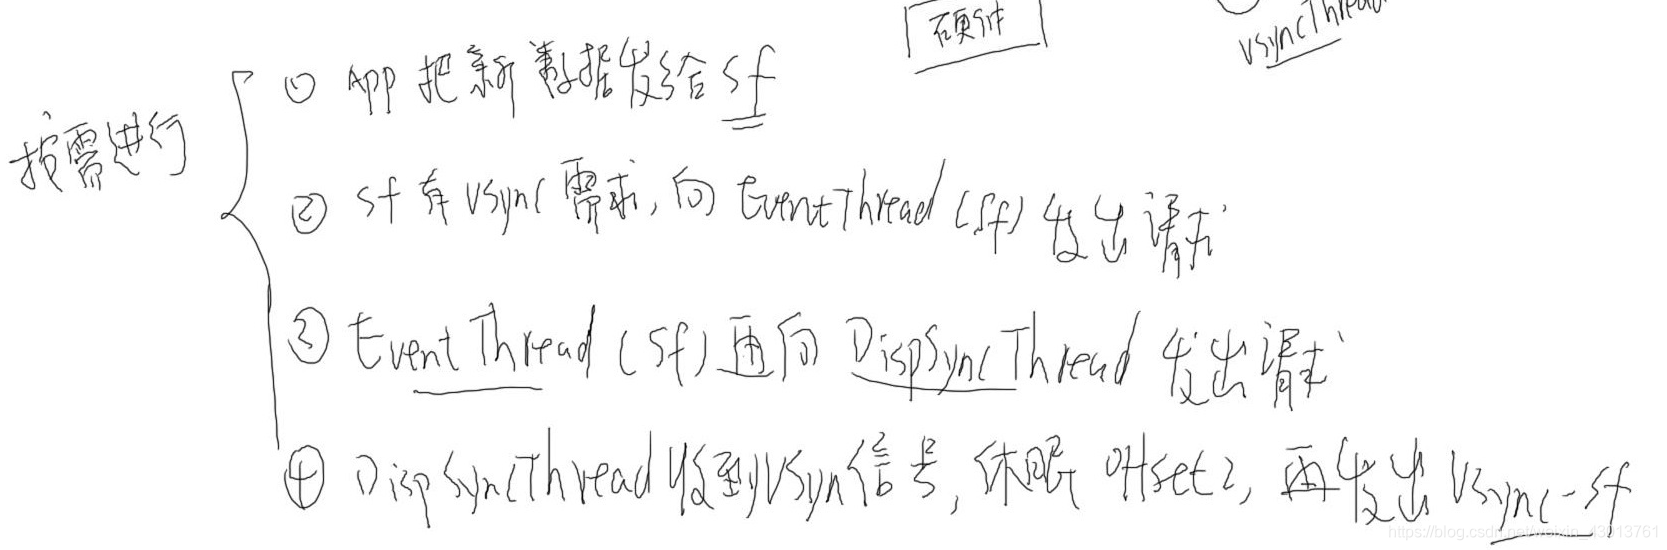 硬件
VsyncThread
按需进行
① APP 把新数据发给 sf
② sf 有 Vsync 需求, 向 EventThread (sf) 发出请求
③ EventThread (sf) 再向 DispSyncThread 发出请求
④ DispSyncThread 收到 VSyn 信号, 休眠 offset2, 再发出 Vsync-sf